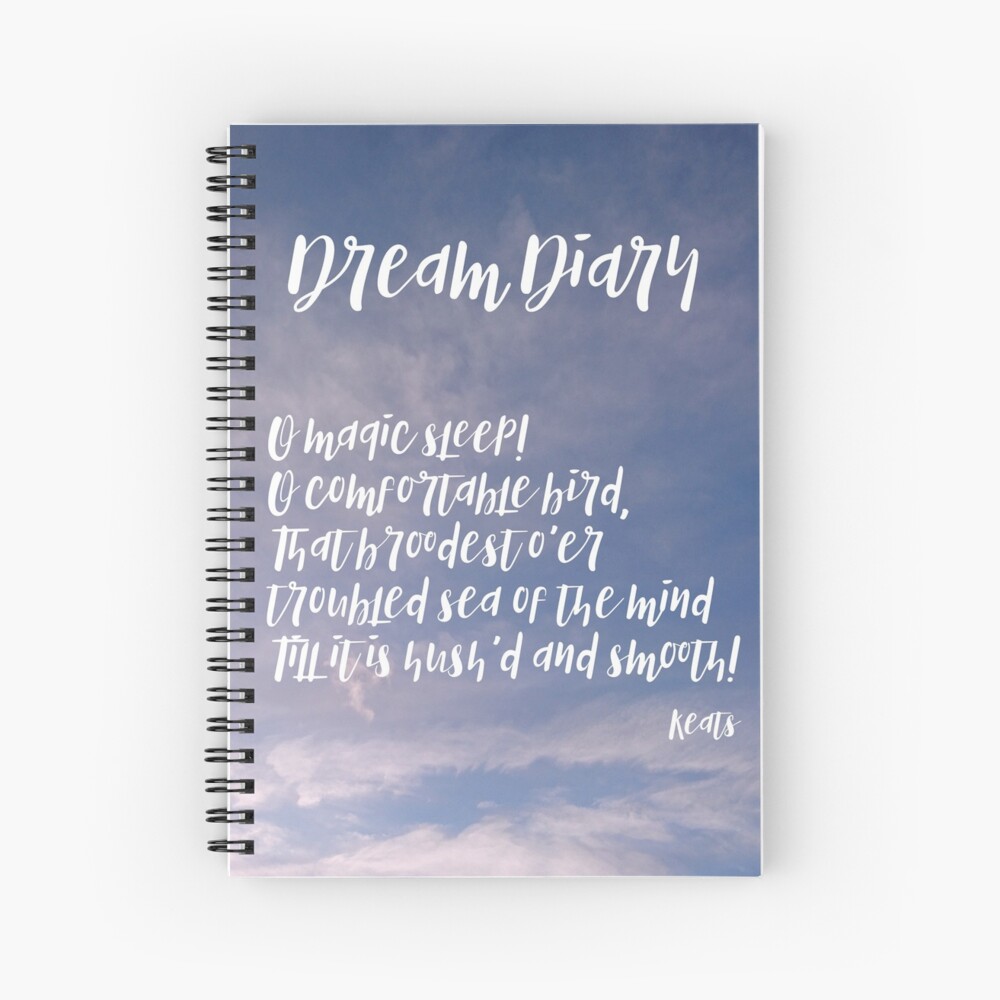 Dream Diary
O magic sleep!
O comfortable bird,
That broodest o'er
troubled sea of the mind
Till it is hush'd and smooth!
Keats